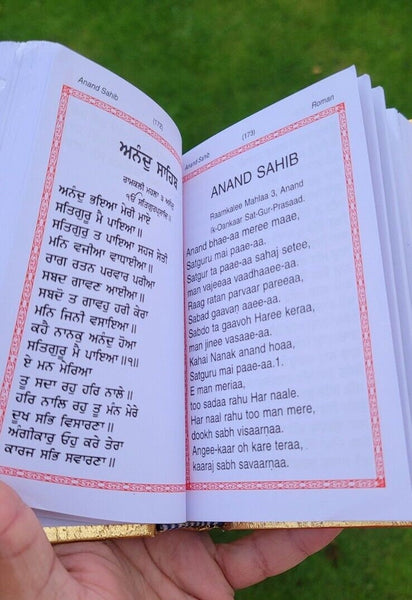 Anand Sahib
(172)
ਅਨੰਦੁ ਸਾਹਿਬ
ਰਾਮਕਲੀ ਮਹਲਾ ੩ ਅਨੰਦੁ
ੴ ਸਤਿਗੁਰਪ੍ਰਸਾਦਿ॥
ਅਨੰਦੁ ਭਇਆ ਮੇਰੀ ਮਾਏ
ਸਤਿਗੁਰੂ ਮੈ ਪਾਇਆ॥
ਸਤਿਗੁਰੁ ਤ ਪਾਇਆ ਸਹਜ ਸੇਤੀ
ਮਨਿ ਵਜੀਆ ਵਾਧਾਈਆ॥
ਰਾਗ ਰਤਨ ਪਰਵਾਰ ਪਰੀਆ
ਸਬਦ ਗਾਵਣ ਆਈਆ॥
ਸਬਦੋ ਤ ਗਾਵਹੁ ਹਰੀ ਕੇਰਾ
ਮਨਿ ਜਿਨੀ ਵਸਾਇਆ॥
ਕਹੈ ਨਾਨਕੁ ਅਨੰਦੁ ਹੋਆ
ਸਤਿਗੁਰੂ ਮੈ ਪਾਇਆ॥੧॥
ਏ ਮਨ ਮੇਰਿਆ
ਤੂ ਸਦਾ ਰਹੁ ਹਰਿ ਨਾਲੇ॥
ਹਰਿ ਨਾਲਿ ਰਹੁ ਤੂ ਮੰਨ ਮੇਰੇ
ਦੂਖ ਸਭਿ ਵਿਸਾਰਣਾ॥
ਅੰਗੀਕਾਰੁ ਓਹੁ ਕਰੇ ਤੇਰਾ
ਕਾਰਜ ਸਭਿ ਸਵਾਰਣਾ॥
Anand Sahib
(173)
Roman
ANAND SAHIB
Raamkalee Mahlaa 3, Anand
Ik-Oankaar Sat-Gur-Prasaad.
Anand bhae-aa meree maae,
Satguru mai paae-aa.
Satgur ta paae-aa sahaj setee,
man vajeeaa vaadhaaee-aa.
Raag ratan parvaar pareeaa,
Sabad gaavan aaee-aa.
Sabdo ta gaavoh Haree keraa,
man jinee vasaae-aa.
Kahai Nanak anand hoaa,
Satguru mai paae-aa.1.
E man meriaa,
too sadaa rahu Har naale.
Har naal rahu too man mere,
dookh sabh visaarnaa.
Angee-kaar oh kare teraa,
kaaraj sabh savaarnaa.